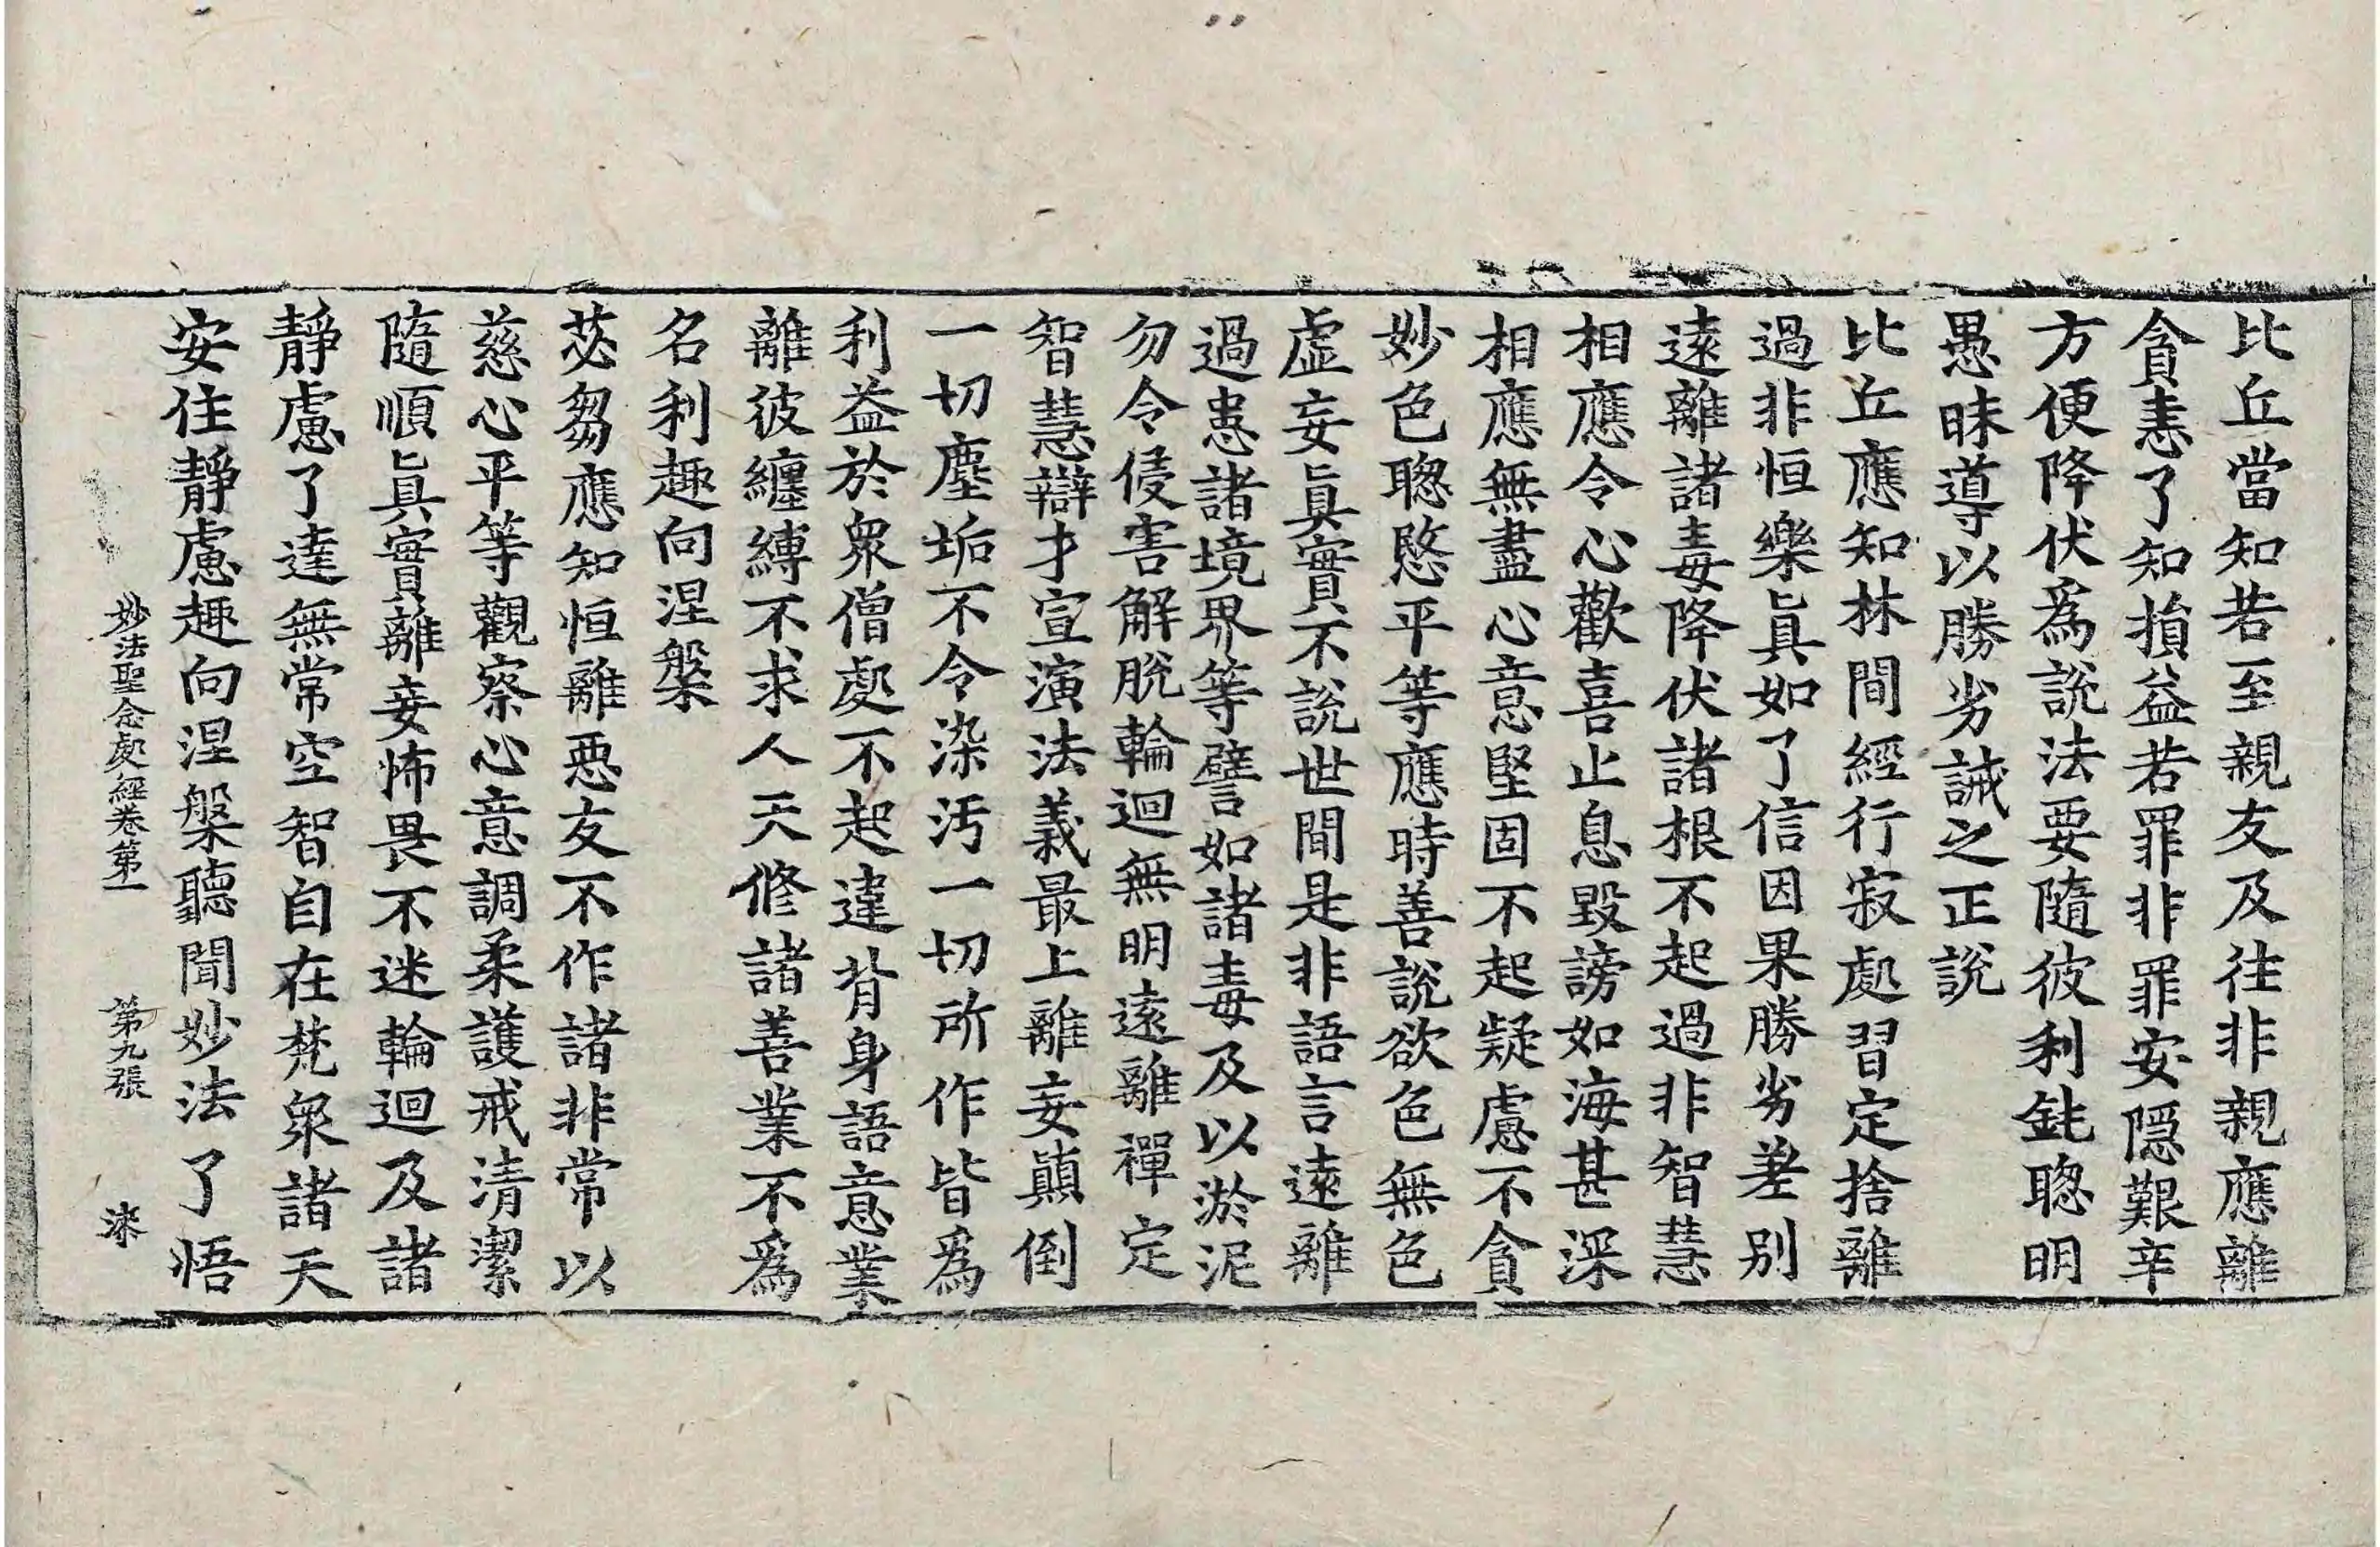 比丘當知若至親友及往非親應離
貪恚了知損益若罪非罪安隱艱辛
方便降伏爲說法要隨彼利鈍聦明
愚昧導以勝劣誡之正說
比丘應知林間經行寂處習定捨離
過非恒樂眞如了信因果勝劣差别
遠離諸毒降伏諸根不起過非智慧
相應令心歡喜止息毀謗如海甚深
相應無盡心意堅固不起疑慮不貪
妙色聦慜平等應時善說欲色無色
虛妄眞實不說世間是非語言遠離
過患諸境界等譬如諸毒及以淤泥
勿令侵害解脫輪迴無明遠離禪定
智慧辯才宣演法義最上離妄顚倒
一切塵垢不令染汚一切所作皆爲
利益於衆僧處不起違背身語意業
離彼纏縛不求人天修諸善業不爲
名利趣向涅槃
苾芻應知恒離惡友不作諸非常以
慈心平等觀察心意調柔護戒清潔
隨順眞實離妄怖畏不迷輪迴及諸
靜慮了達無常空智自在梵衆諸天
安住靜慮趣向涅槃聽聞妙法了悟
妙法聖念處經卷第一 第九張 染